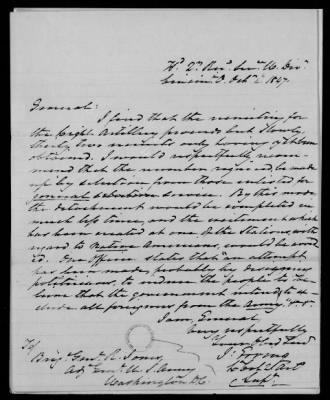 Hd Qrs Recg Servce W. Divn
Cincinn. O. Octr 1847
General:
I find that the recruiting for
the Light Artillery proceeds but slowly,
thirty two recruits only having yet been
obtained. I would respectfully recom-
mend that the number required be made
up by selection from those enlisted for
general service. By this mode
the detachment would be completed in
much less time, and the excitement which
has been created at one of the Stations, with
regard to Native Americans, would be avoid
ed. One officer states that an attempt
has been made, probably by designing
politicians, to induce the people to be-
lieve that the government intends to ex-
clude all foreigners from the Army
I am, General
Very respectfully
Your Obd Servt
J. Erving
Supt
To
Brigr Genl R. Jones
Adjt Genl U. S. Army
Washington D.C.